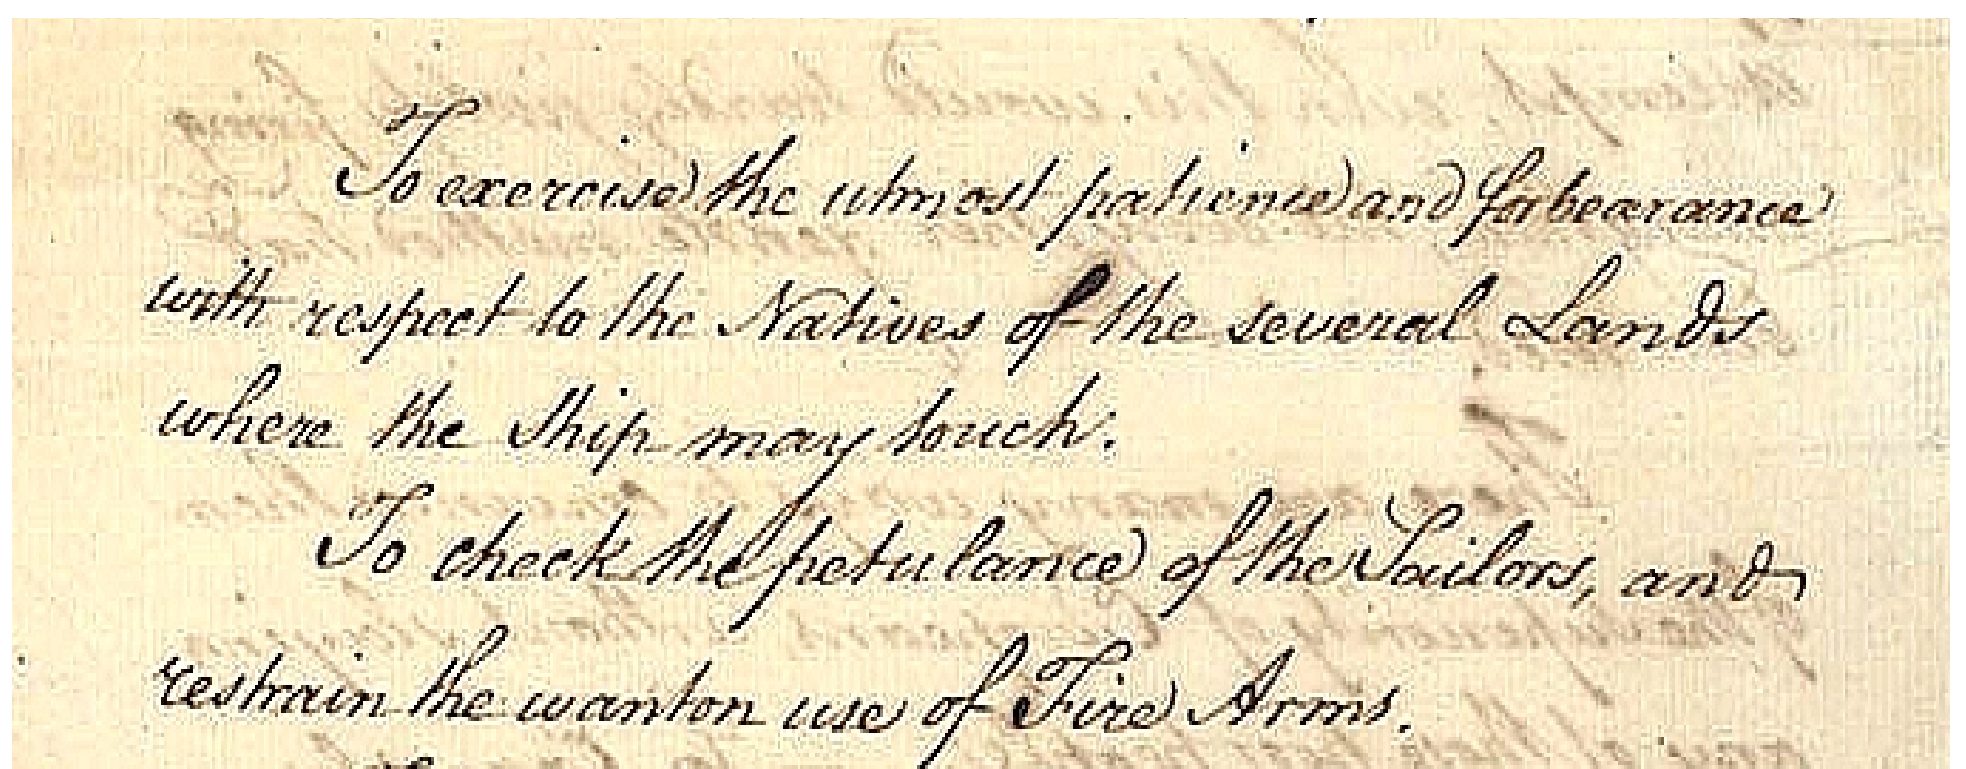 To exercise the utmost patience and forbearance
with respect to the Natives of the several Lands
where the Ship may touch.
To check the petulance of the Sailors, and
restrain the wanton use of Fire Arms.